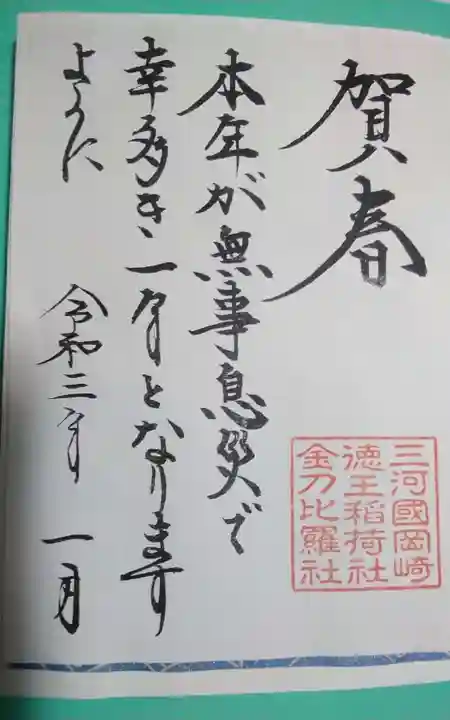 賀春
本年が無事息災で
幸多き一年となります
ように
令和三年 一月
三河國岡崎
徳王稲荷社
金刀比羅社